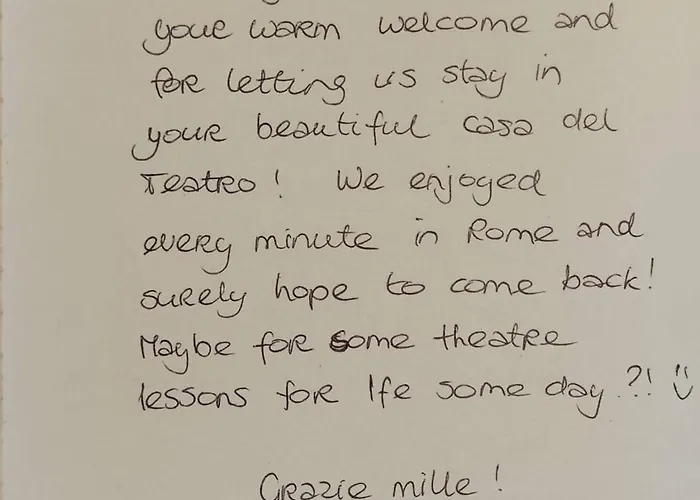 your warm welcome and
for letting us stay in
your beautiful casa del
Teatro! We enjoyed
every minute in Rome and
surely hope to come back!
Maybe for some theatre
lessons for Ife some day ?! ü
Grazie mille!